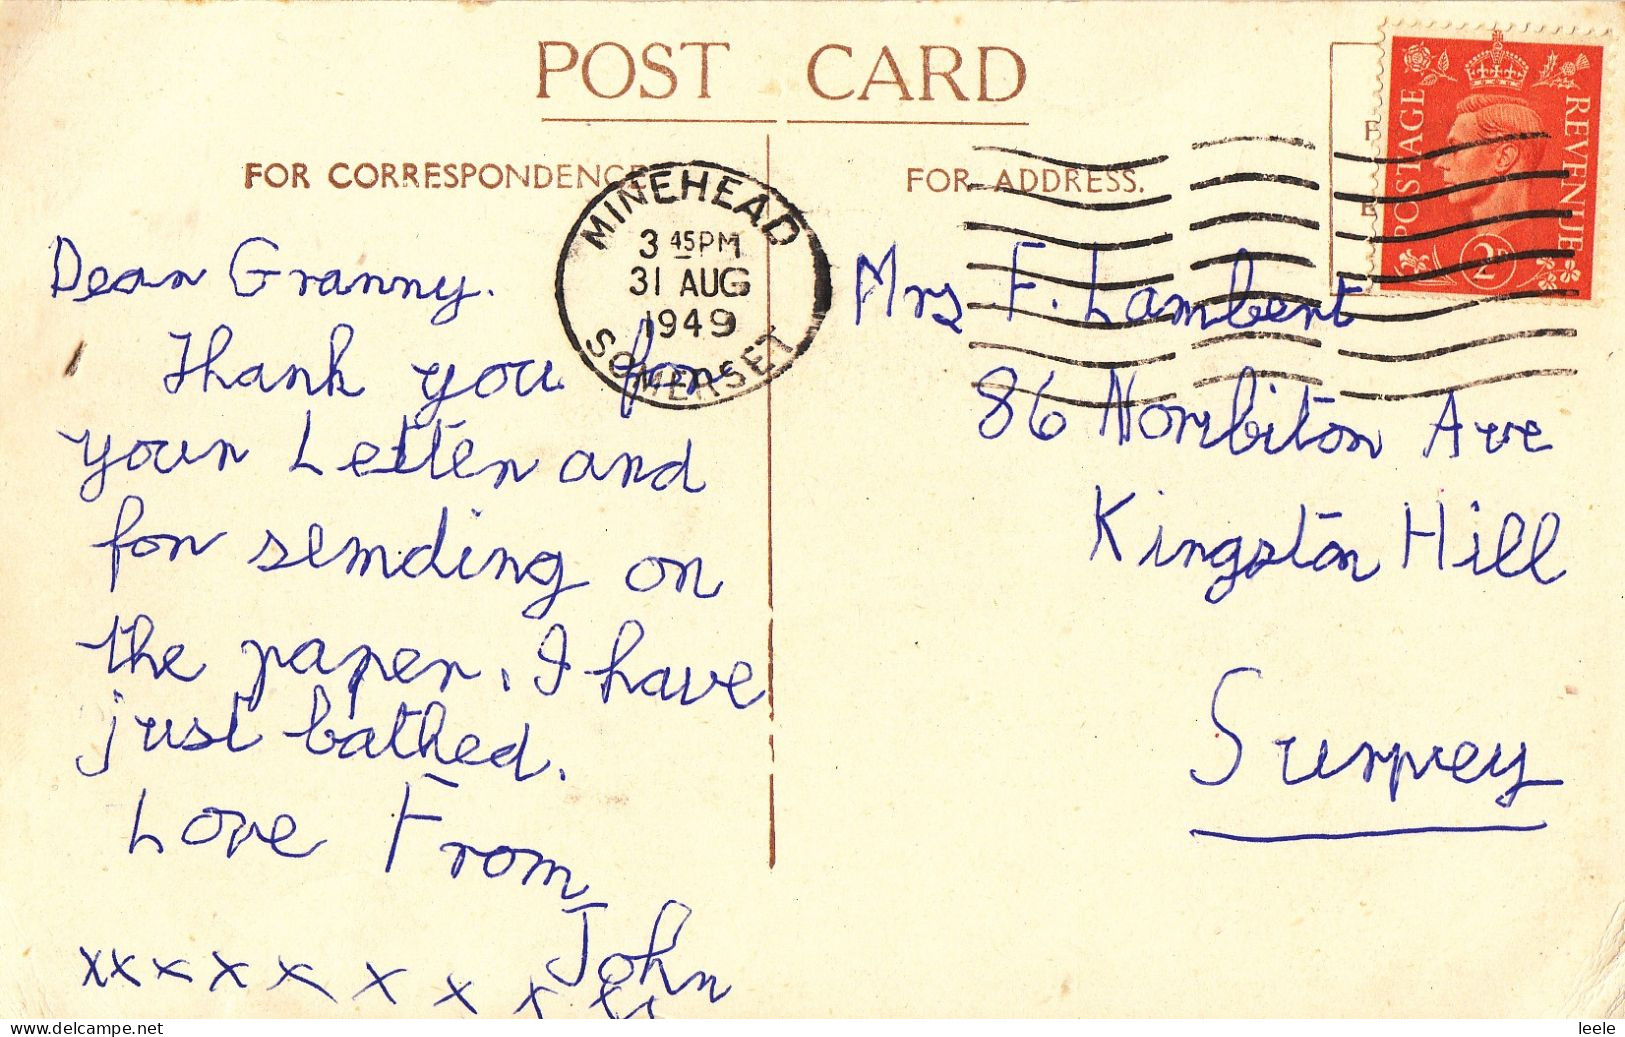 POST CARD
FOR CORRESPONDENCE
FOR ADDRESS.
POSTAGE
REVENUE
2D
MINEHEAD
3 45PM
31 AUG
1949
SOMERSET
Dear Granny.
Thank you for
your Letter and
for sending on
the paper. I have
just bathed.
Love From
John
xxxxxxxxxx
Mrs F. Lambert
86 Norbiton Ave
Kingston Hill
Surrey
delcampe.net
leele